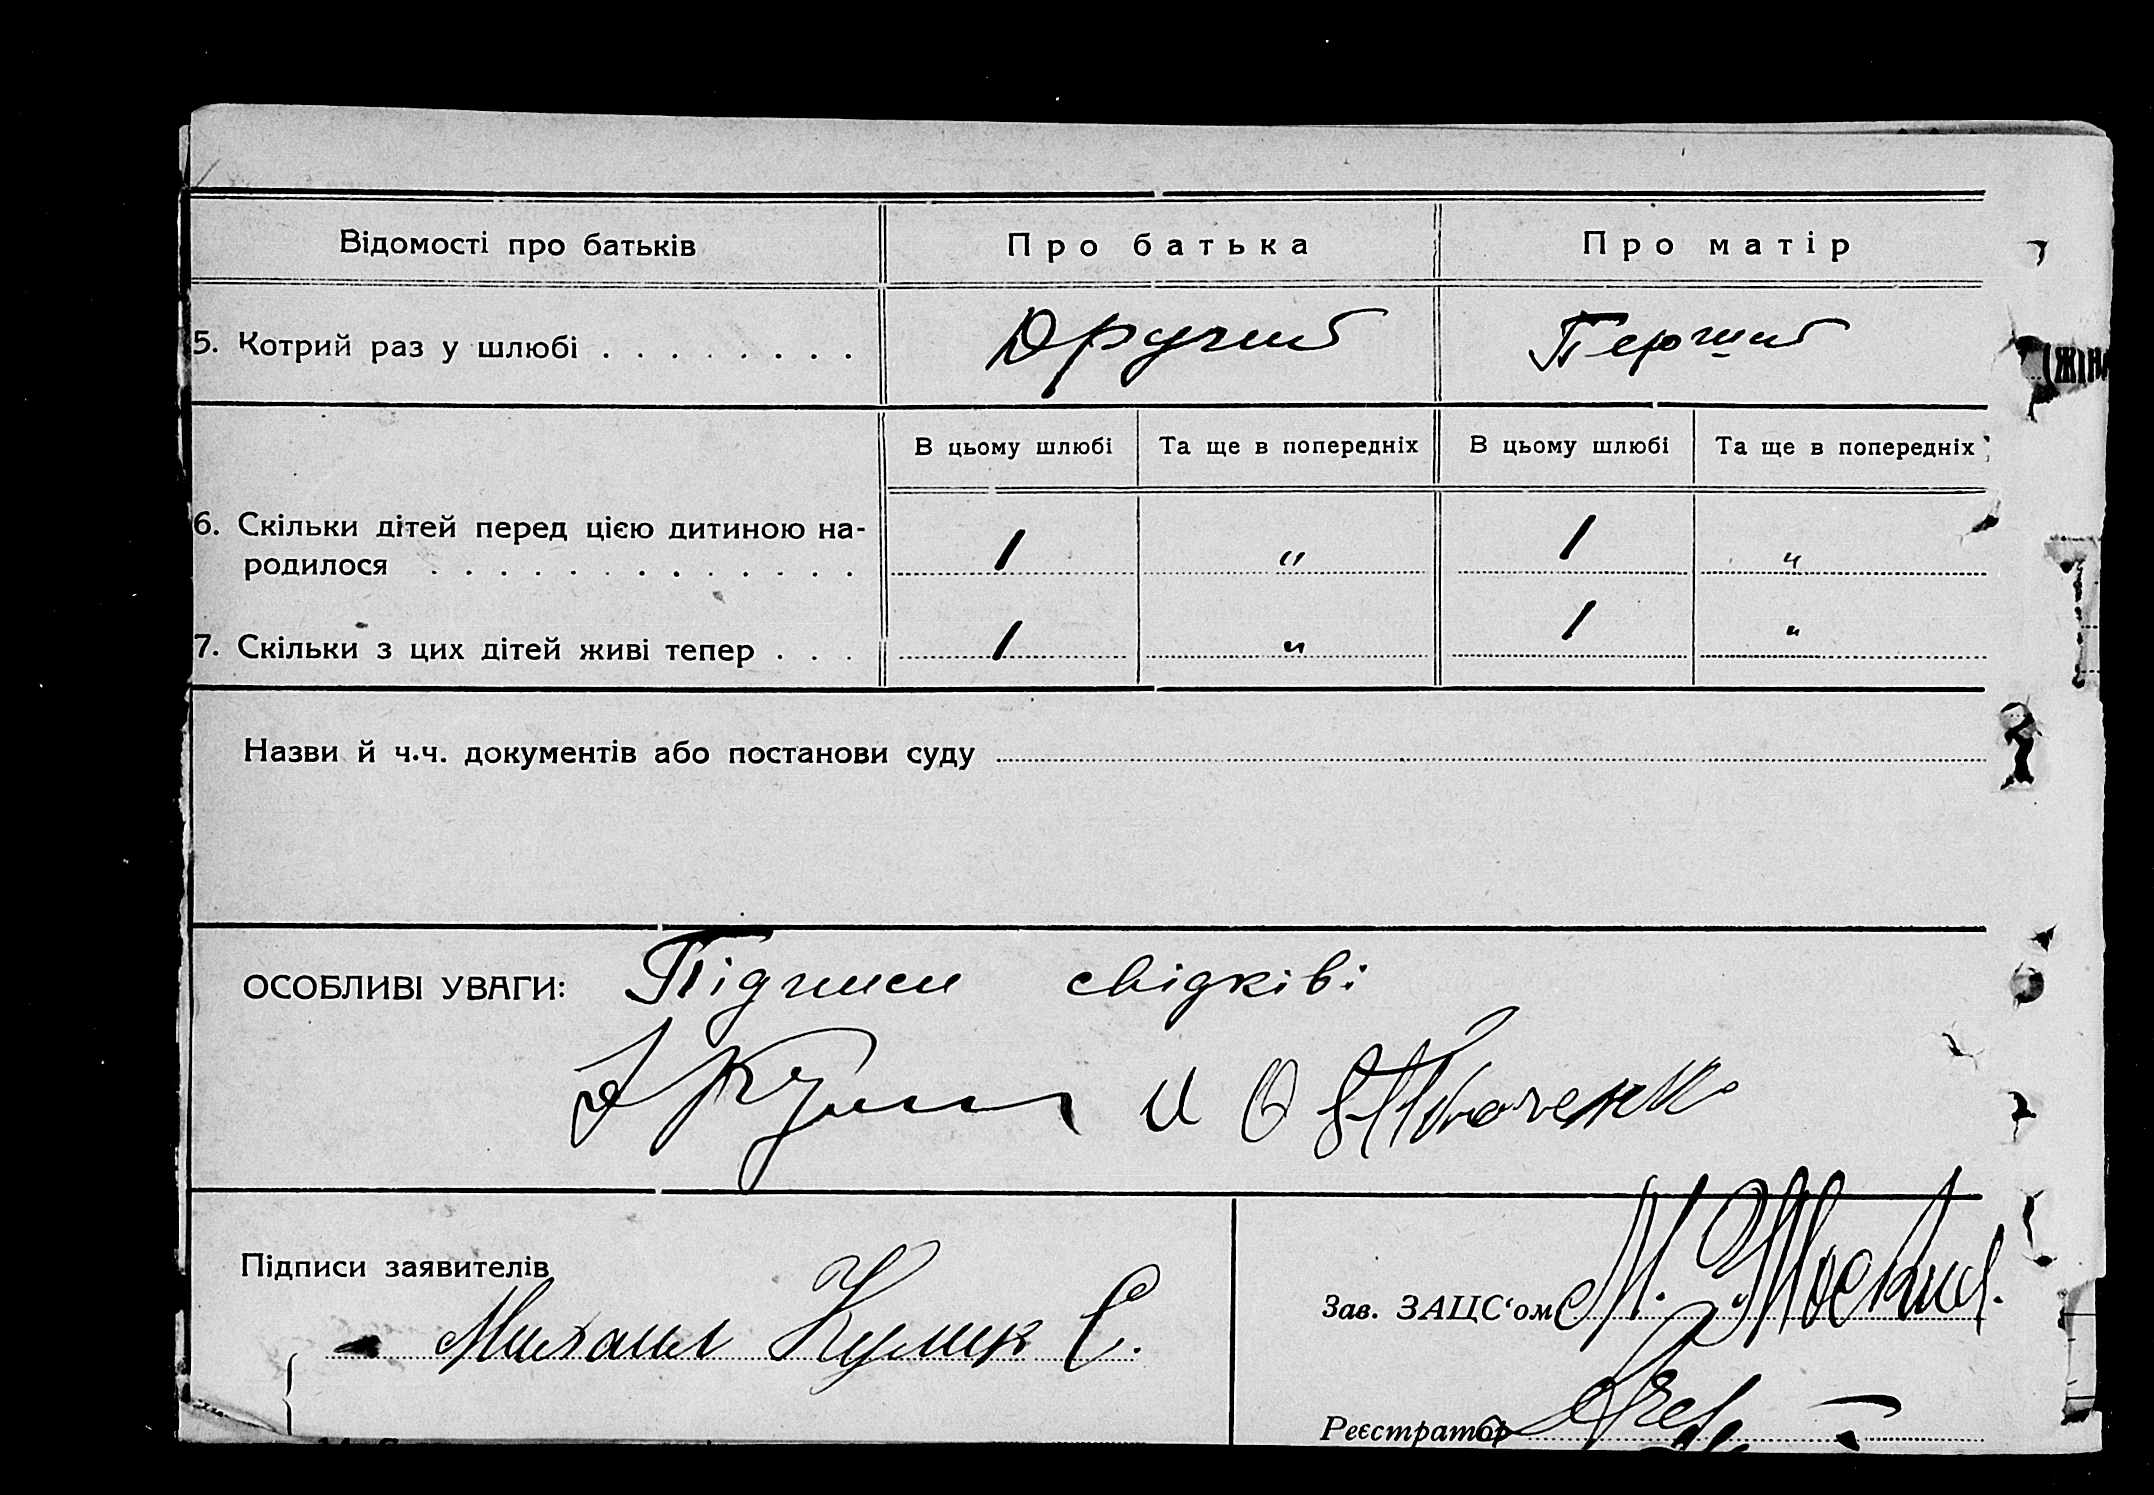 Відомості про батьків Про батька Про матір
5. Котрий раз у шлюбі . . . . . . . . Другий Перший
(ЖІН
В цьому шлюбі Та ще в попередніх В цьому шлюбі Та ще в попередніх
6. Скільки дітей перед цією дитиною на-
родилося . . . . . . . . . . . . . 1 " 1 "
7. Скільки з цих дітей живі тепер . . . 1 " 1 "
Назви й ч.ч. документів або постанови суду
ОСОБЛИВІ УВАГИ: Підписи свідків:
и О
Підписи заявителів
Михаил Кулик С.
Зав. ЗАЦС‘ом М.
Реєстратор